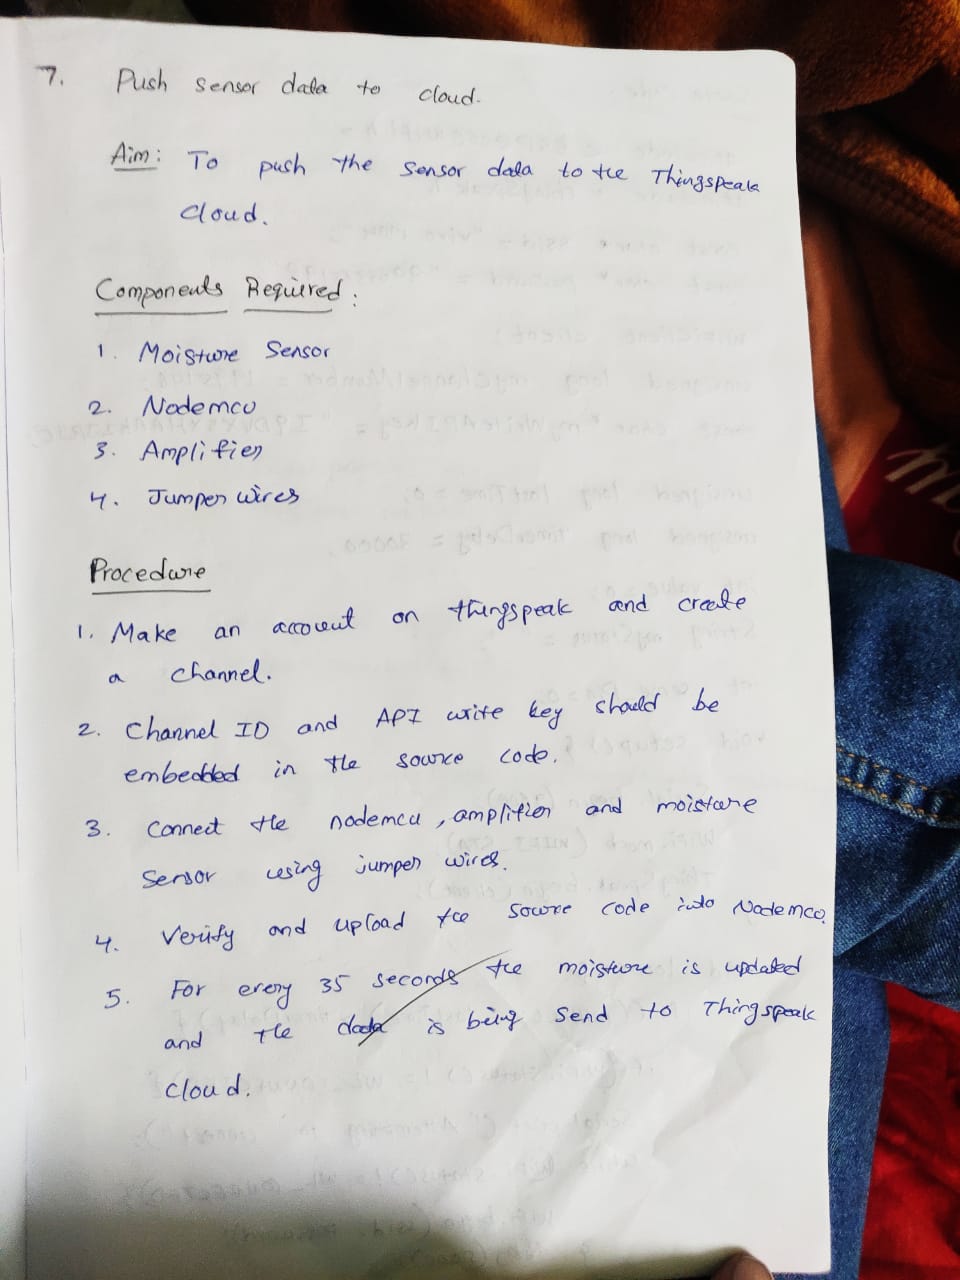 7. Push sensor data to cloud.
Aim: To push the sensor data to the Thingspeak
Cloud.
Components Required:
1. Moisture Sensor
2. Nodemcu
3. Amplifier
4. Jumper wires
Procedure
1. Make an account on thingspeak and create
a channel.
2. Channel ID and API write key should be
embedded in the source code.
3. Connect the nodemcu, amplifier and moisture
Sensor using jumper wires.
4. Verify and upload the source code into Nodemcu.
5. For every 35 seconds the moisture is updated
and the data is being Send to Thingspeak
cloud.